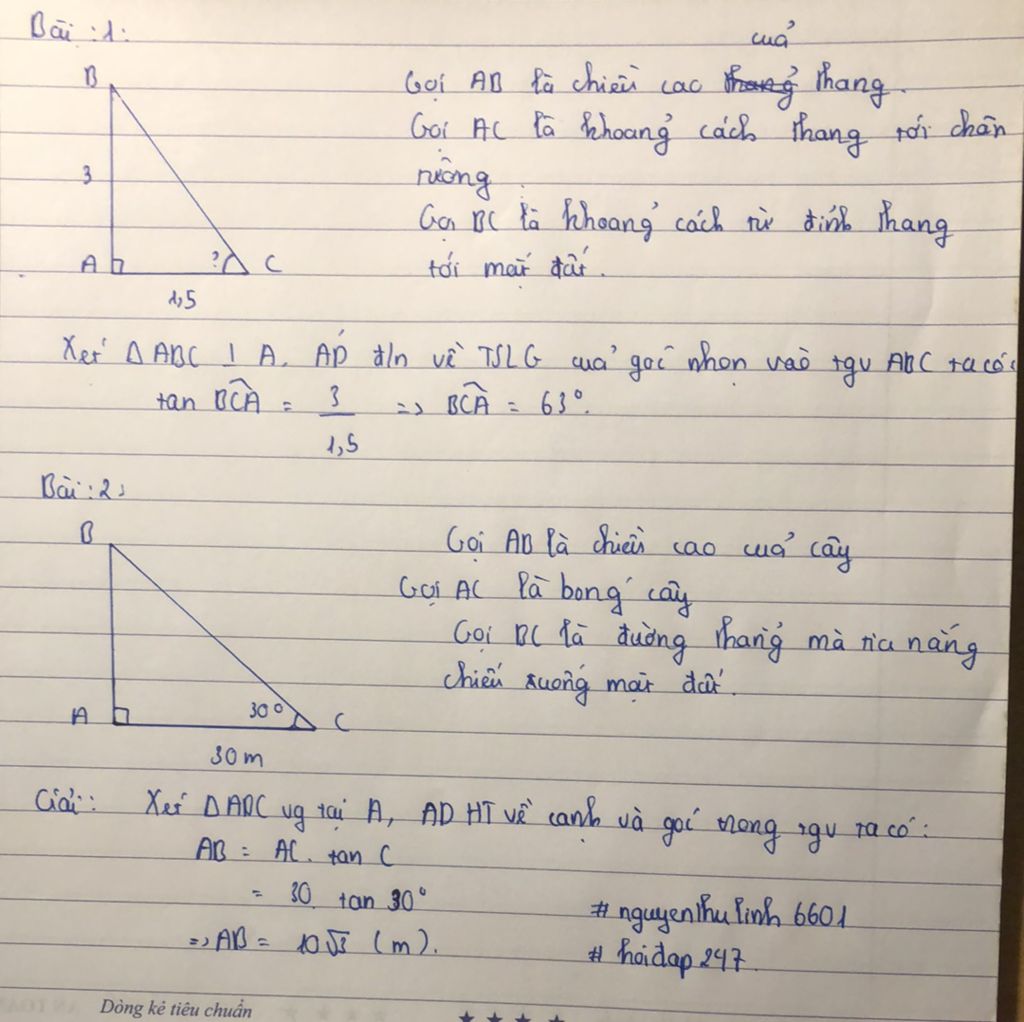 Bài :1:
cuả
B
Gọi AB là chiều cao thang.
Gọi AC là khoảng cách thang tới chân
3
tường.
Gọi BC là khoảng cách từ đỉnh thang
A ? C
tới mặt đất.
1,5
Xét Δ ABC ⊥ A. AD đ/n về TSLG cuả góc nhọn vào tgv ABC ta có:
tan BCA = 3/1,5 => BCA = 63°.
Bài :2:
B
Gọi AB là chiều cao cuả cây
Gọi AC là bóng cây
Gọi BC là đường thẳng mà tia nắng
chiếu xuống mặt đất.
A 30° C
30 m
Giải: Xét Δ ABC vg tại A, AD HT về cạnh và góc trong tgv ta có:
AB = AC . tan C
= 30 . tan 30°
# nguyenthulinh 6601
=> AB = 10√3 (m).
# hoidap 247.
Dòng kẻ tiêu chuẩn